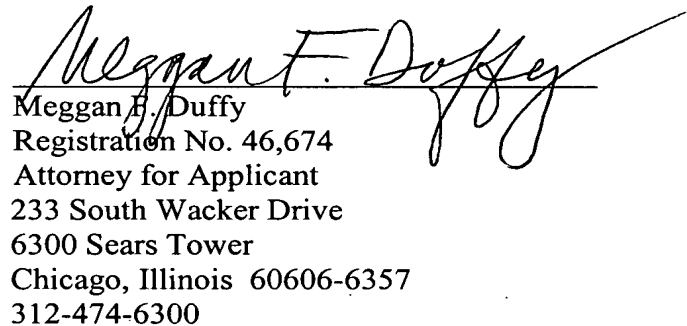 Meggan F. Duffy
Meggan F. Duffy
Registration No. 46,674
Attorney for Applicant
233 South Wacker Drive
6300 Sears Tower
Chicago, Illinois 60606-6357
312-474-6300